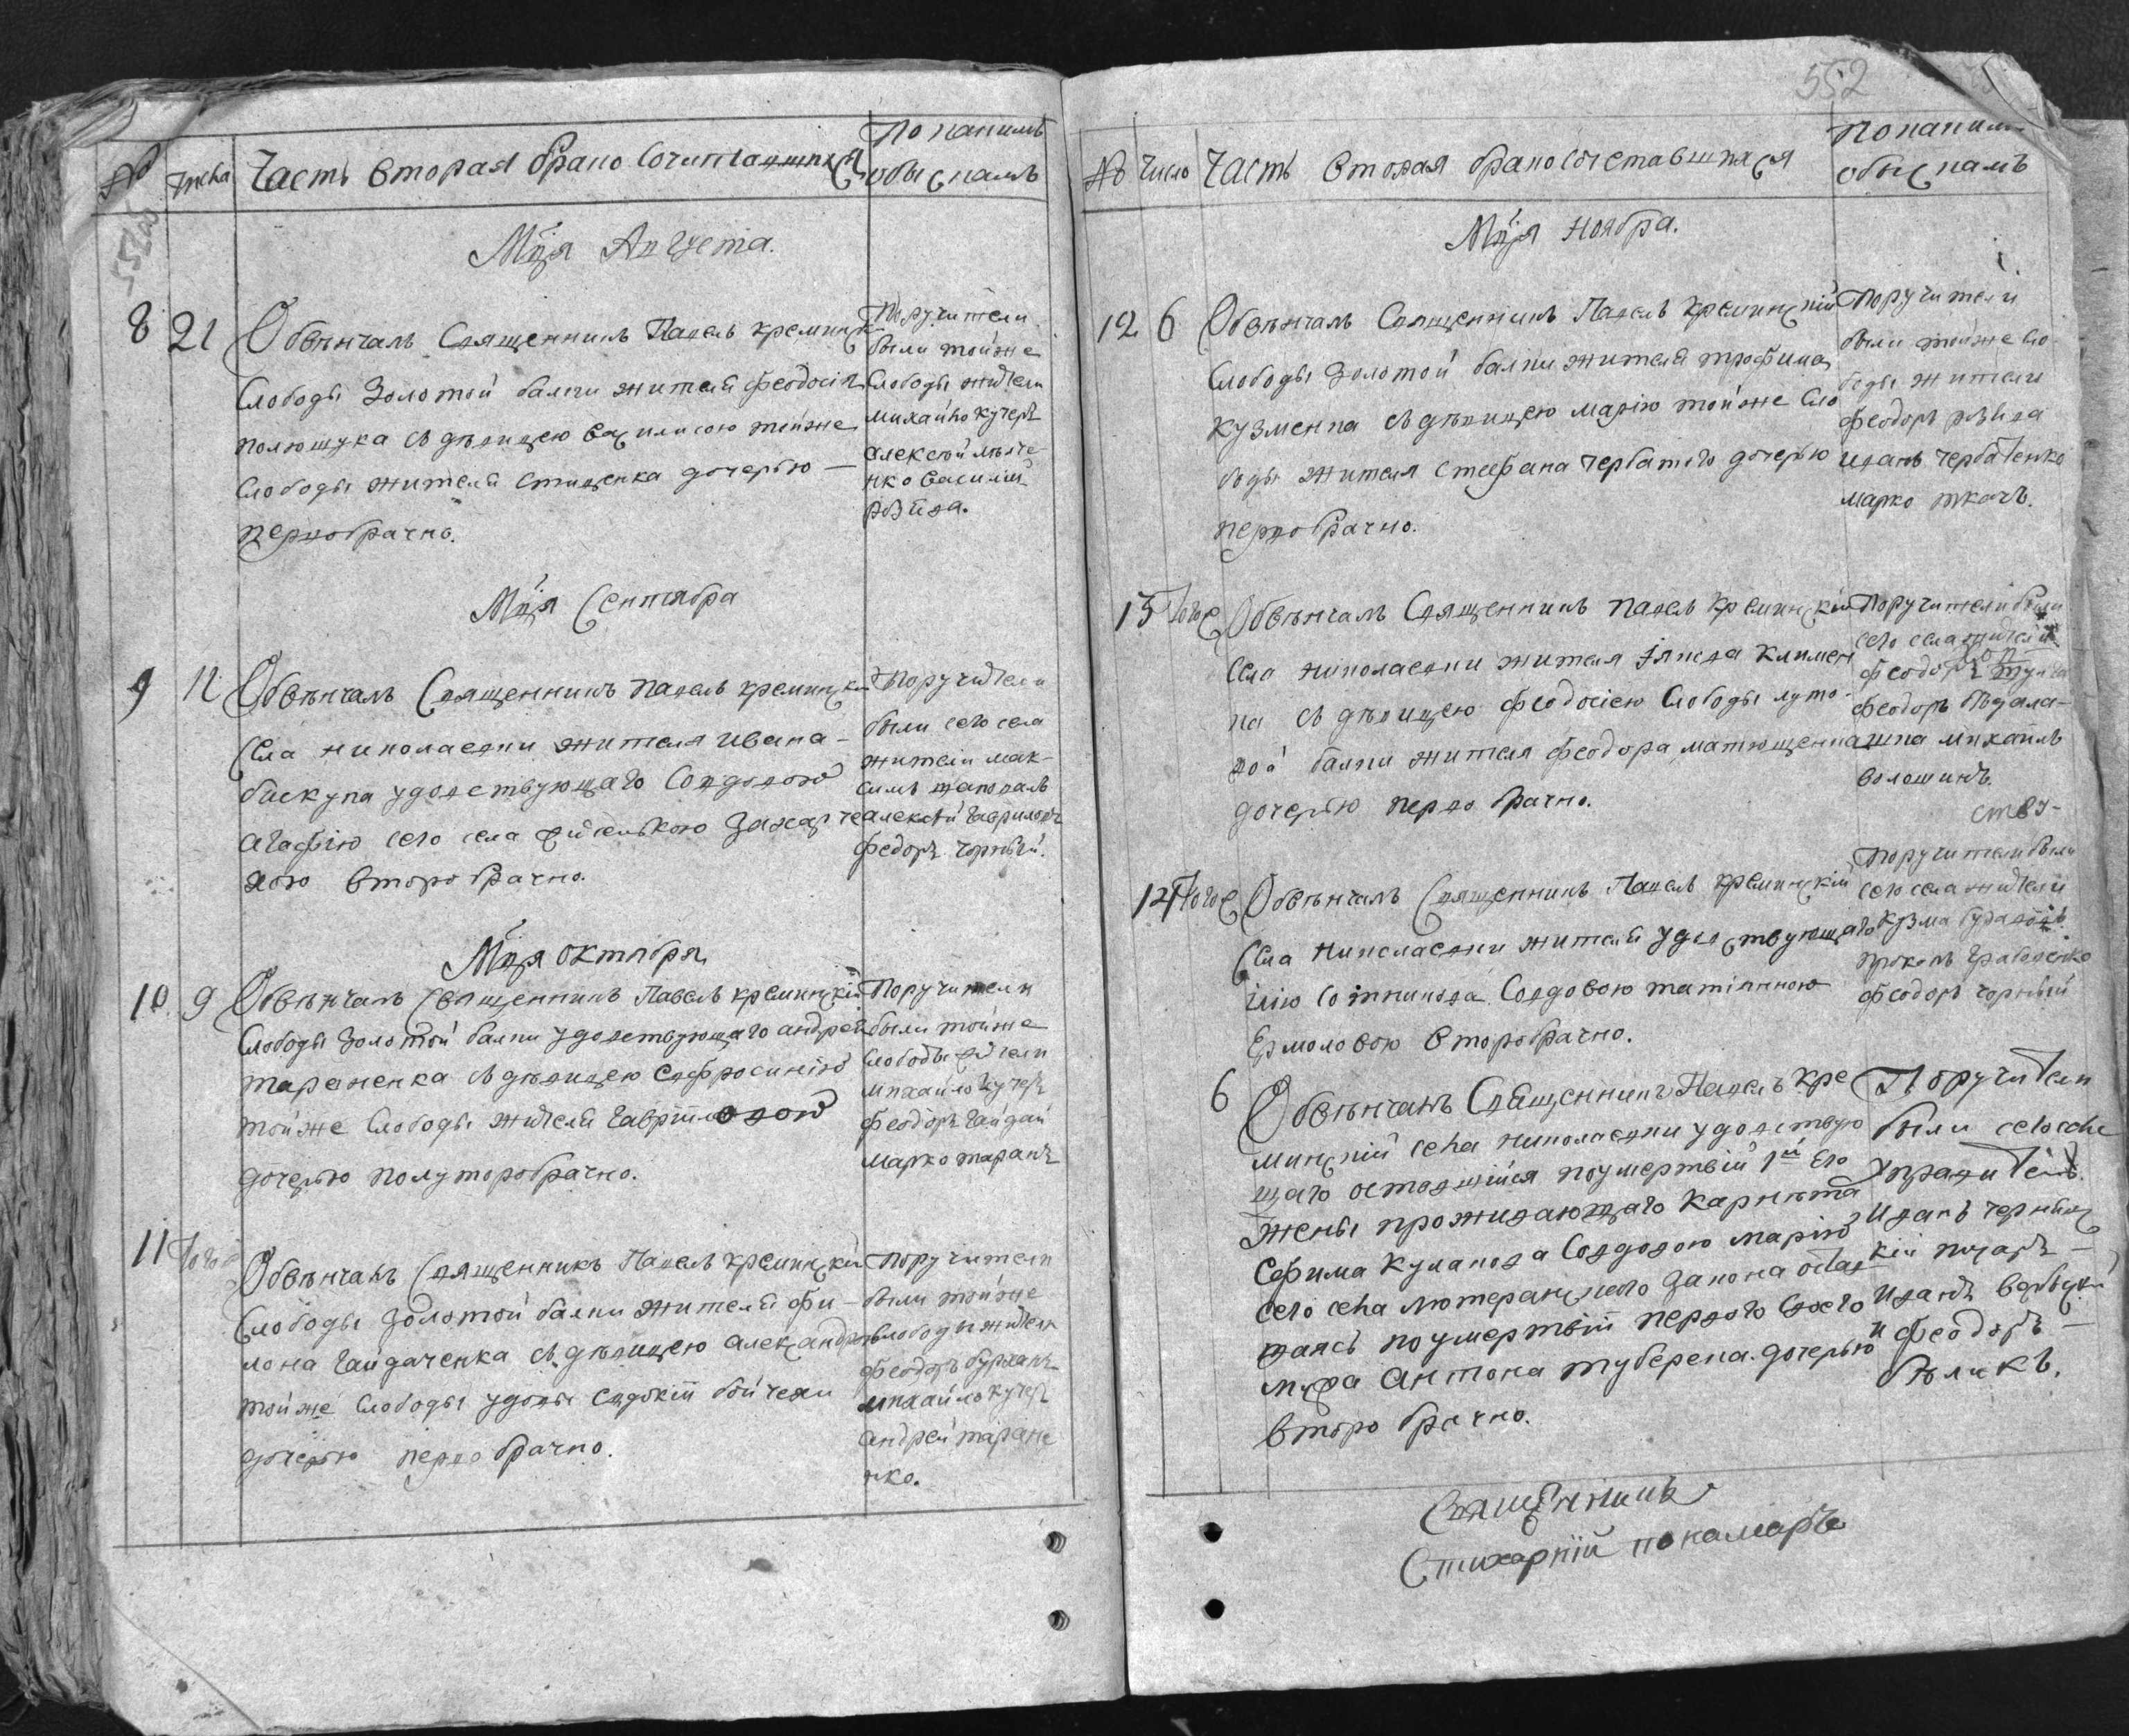 552
№
числа
Часть вторая брако сочитавшихся
По какимъ
обыскамъ
Мца Августа.
8
21
Обвѣнчалъ Священникъ Павелъ кремин
Слободы Золотой балки жителя феодосія
полющука съ дѣвицею Василисою тойже
Слободы жителя дочерью —
первобрачно.
Поручители
были тойже
Слободы жители
михайло кучеръ
алексѣй
нко Василій
Мца Сентабра
9
Обвѣнчалъ Священникъ Павелъ креминскій
Села николаевки жителя ивана
бискупа удовствующаго Совдовою
агафію сего села жителькою
вою второбрачно.
Поручители
были сего села
жители мак-
симъ шаповалъ
алексѣй гавриловъ
федоръ чорный.
Мца октабра
10
9
Обвѣнчалъ Священникъ Павелъ креминскій
Слободы Золотой балки удовствующаго андрея
тараненка съ дѣвицею Евфросинією
тойже Слободы жителя гавриловою
дочерью полуторобрачно.
Поручители
были тойже
Слободы жители
михайло кучеръ
феодоръ гайдай
марко таранъ
11
Тогоже
Обвѣнчалъ Священникъ Павелъ креминскій
Слободы Золотой балки жителя фи-
лона гайдаченка съ дѣвицею александрою
тойже Слободы удовы Евдокіи бойчехи
дочерью первобрачно.
Поручители
были тойже
слободы жители
феодоръ
михайло кучеръ
андрей таране
нко.
№
Число
Часть вторая брако сочетавшихся
По какимъ
обыскамъ
Мца ноября.
12
6
Обвѣнчалъ Священникъ Павелъ креминскій
Слободы Золотой балки жителя трофима
кузменка съ дѣвицею марію тойже Сло
боды жителя стефана чербатого дочерью
первобрачно.
Поручители
были тойже сло-
боды жители
феодоръ
иванъ чербатенко
марко ткачъ.
13
Тогоже
Обвѣнчалъ Священникъ Павелъ креминскій
Села николаевки жителя климен
ка съ дѣвицею феодосією Слободы
вой балки жителя феодора матющенка
дочерью первобрачно.
Поручители были
сего села жители
феодоръ
феодоръ
шка михаилъ
волошинъ.
Тогоже
Обвѣнчалъ Священникъ Павелъ креминскій
Села николаевки жителя удовствующаго
Совдовою татіанною
Ермоловою второбрачно.
Поручители были
сего села жители
Кузма
феодоръ чорный
6
Обвѣнчалъ Священникъ Павелъ кре
минскій села николаевки удовствую
щаго оставшійся поумертвій 1й его
жены проживающаго карнѣта
Ефима куликова Совдовою марію
сего села лютеранского закона остав
шаясь поумертвій первого своего
мужа антона туберена дочерью
второ брачно.
Поручители
были сего села
управитель
иванъ черниц
кій
иванъ вербицкій
и феодоръ —
бѣликъ.
Священникъ
Стихарній понамаръ